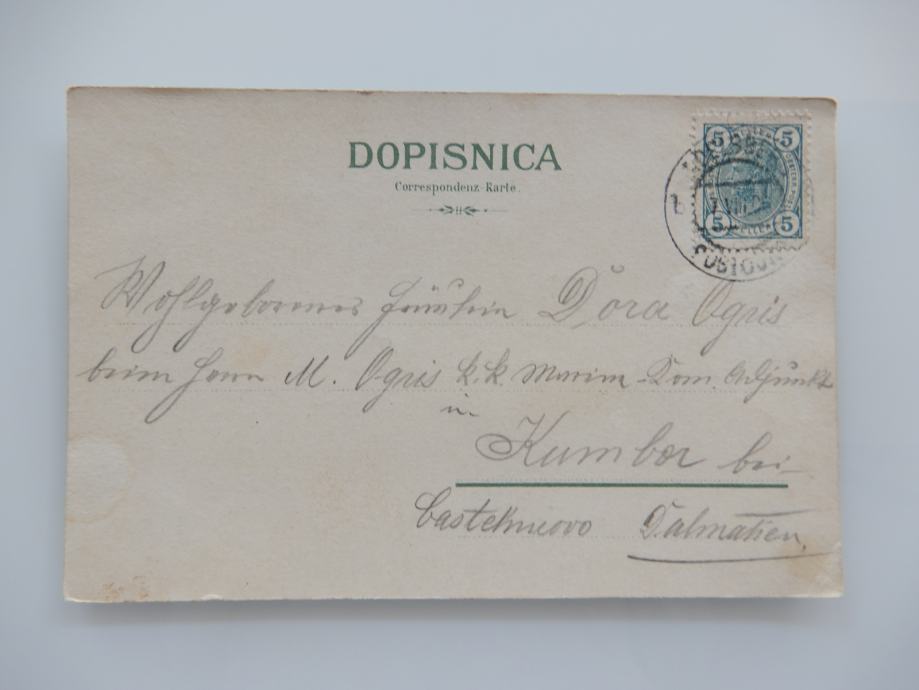 DOPISNICA
Correspondenz-Karte.
5 5
5 5
Wohlgeborenes Fräulein Dora Ogris
beim Herrn M. Ogris k.k. Marim. Kom. Adjunkt
in
Kumbor bei
Castelnuovo Dalmatien.